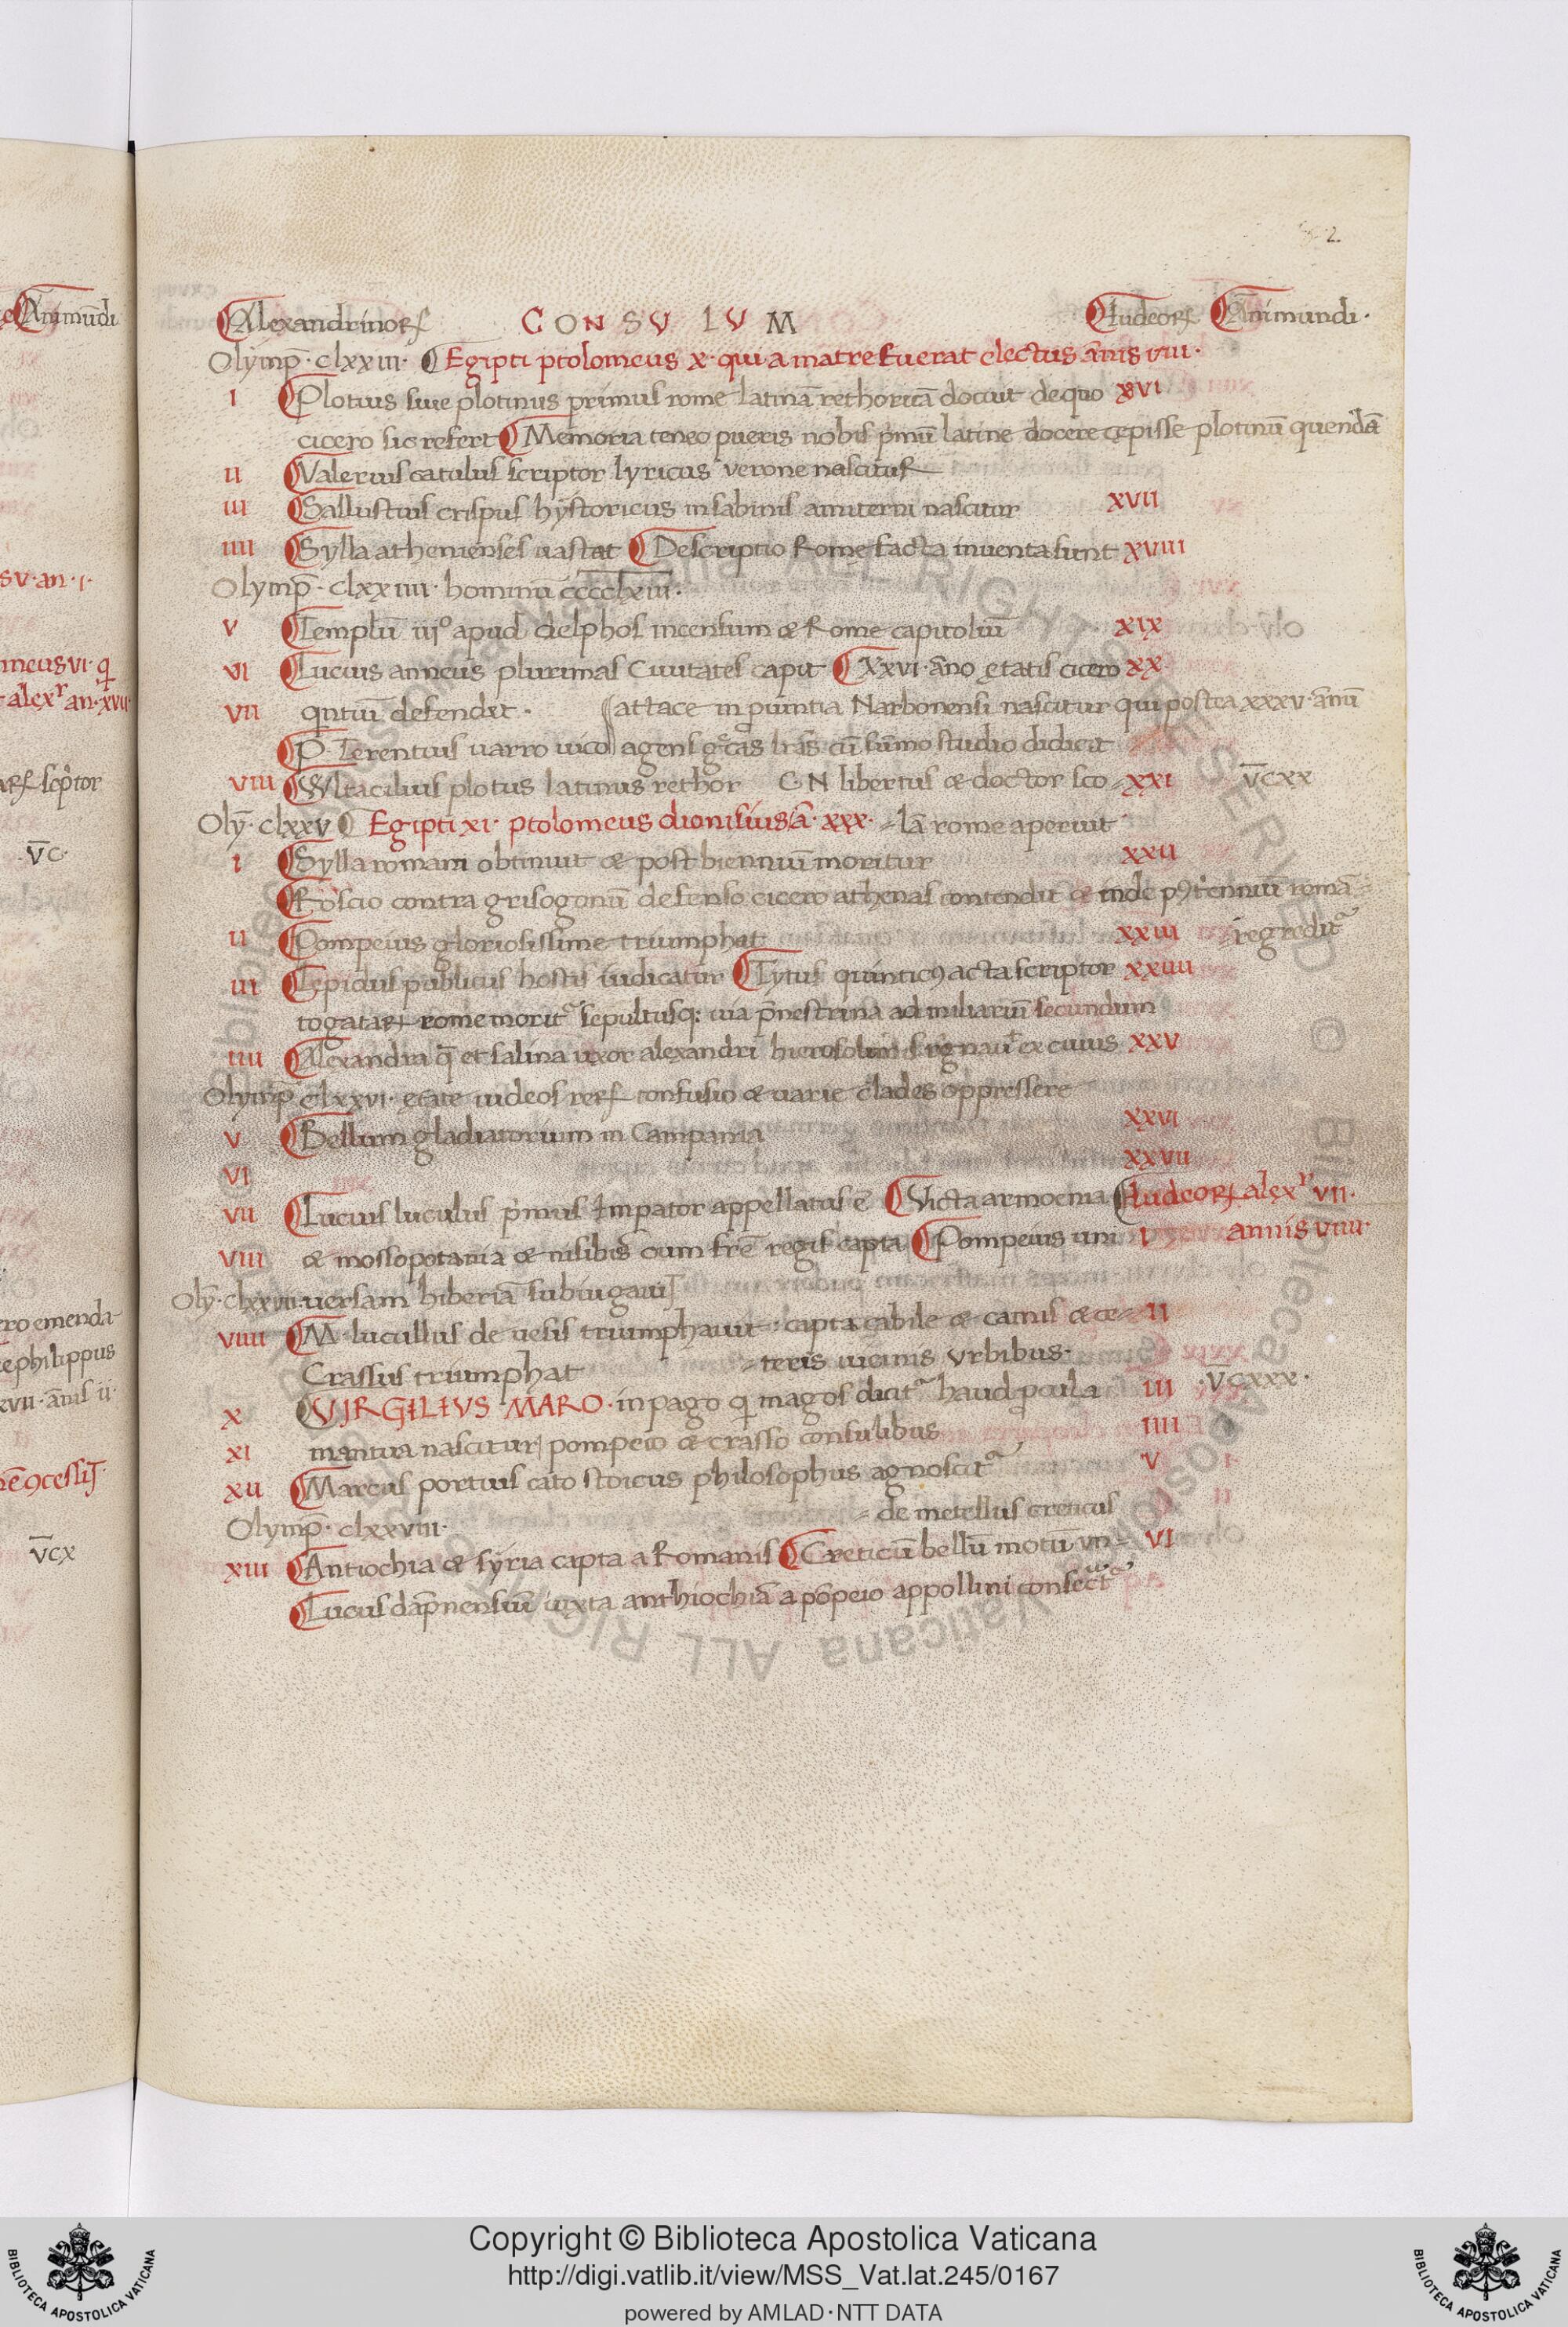 Alexandrinoꝝ CONSVLVM Iudeoꝝ Ani mundi·
Olymp̄· clxxiii· Egipti ptolomeus x· qui a matre fuerat electus ān̄is viii·
I Plotius siue plotinus primus rome latinā rethoricā docuit de quo XVI
cicero sic refert Memoria teneo pueris nobis p̄mū latine docere cępisse plotinū quendā
II Valerius catulus scriptor lyricus verone nascitur
III Sallustius crispus hystoricus in sabinis amiterni nascitur XVII
IIII Sylla athenienses uastat Descriptio Rome facta inuenta sunt XVIII
Olymp̄· clxxiiii· hominū cccclxiii·
V Templū iijº apud delphos incensum & Rome capitoliū XIX
VI Lucius anneus plurimas Ciuitates capit XXVI· āno etatis cicero XX
VII qntiū defendit· attace in puintia Narbonensi nascitur qui postea xxxv· ānū
P Terentius uarro uico agens gc̄as lr̄as cū sūmo studio didicit
VIII Vltacilius plotus latinus rethor C·N libertus & doctor sco- XXI v̄cxx
Olȳ· clxxv Egipti xi· ptolomeus dionisius ā· xxx· -lā rome aperuit
I Sylla romam obtinuit & post biennium moritur XXII
Roscio contra grisogonū defenso cicero athenas contendit & inde p9t'ennium romā-
II Pompeius gloriosissime triumphat XXIII -regredit᷑
III Lepidus publicus hostis iudicatur Tytus quintic9 acta scriptor XXIIII
togataꝝ rome morit᷑ sepultusq: uia p̄nestrina ad miliariū secundum
IIII Alexandra q̄ et salina uxor alexandri hierosolimis rgnauᵗ ex cuius XXV
Olymp̄ clxxvi· ętate iudeos reꝝ confusio & uarie clades oppressere
V Bellum gladiatorium in Campania XXVI
VI XXVII
VII Lucius luculus p̄mus Impator appellatus ē Victa armoenia Iudeoꝝ alexʳ VII·
VIII & mossopotania & nisibis cum frē regis capta Pompeius uni I annis VIIII·
Olȳ· clxxvii· uersam hiberiā subiugauit
VIIII M· lucullus de uesis triumphauit: capta cabile & camis & ce- II
Crassus triumphat -teris uicinis Vrbibus·
X VIRGILIVS MARO· in pago qi magos dicit᷑ haud pcul a III ·v̄cxxx·
XI mantua nascitur pompeio & crasso consulibus IIII
XII Marcus portius cato stoicus philosophus agnoscit᷑ V
Olymp̄· clxxviii· -de metellus creticus
XIII Antiochia & syria capta a Romanis Creticū bellū motū vn- VI
Lucus dāpnensiū iuxta anthiochiā a pōpeio appollini consecᵃt᷑
Ani mūdi
sv· an· i·
meus vi· q
alexʳ an· xvii·
scp̄tor
·v̄c·
ro emenda-
philippus
xvii· ānis ii·
v̄cx
Copyright © Biblioteca Apostolica Vaticana
http://digi.vatlib.it/view/MSS_Vat.lat.245/0167
powered by AMLAD·NTT DATA
BIBLIOTECA APOSTOLICA VATICANA
BIBLIOTECA APOSTOLICA VATICANA